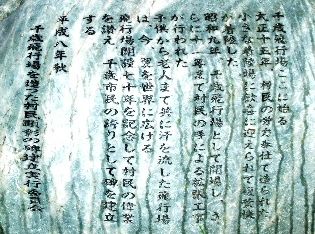 千歳飛行場ここに始る
大正十五年 村民の労力奉仕で造られた
小さな着陸場に歓喜に迎えられて複葉機
が着陸した
昭和九年 千歳飛行場として開場し さ
らに十二年まで村民の手による拡張工事
が行われた
子供から老人まで共に汗を流した飛行場
は 今 翼を世界に広げる
飛行場開設七十年を記念して村民の偉業
を讃え 千歳市民の誇りとして碑を建立
する
平成八年秋
千歳飛行場を造った村民顕彰の碑建立実行委員会